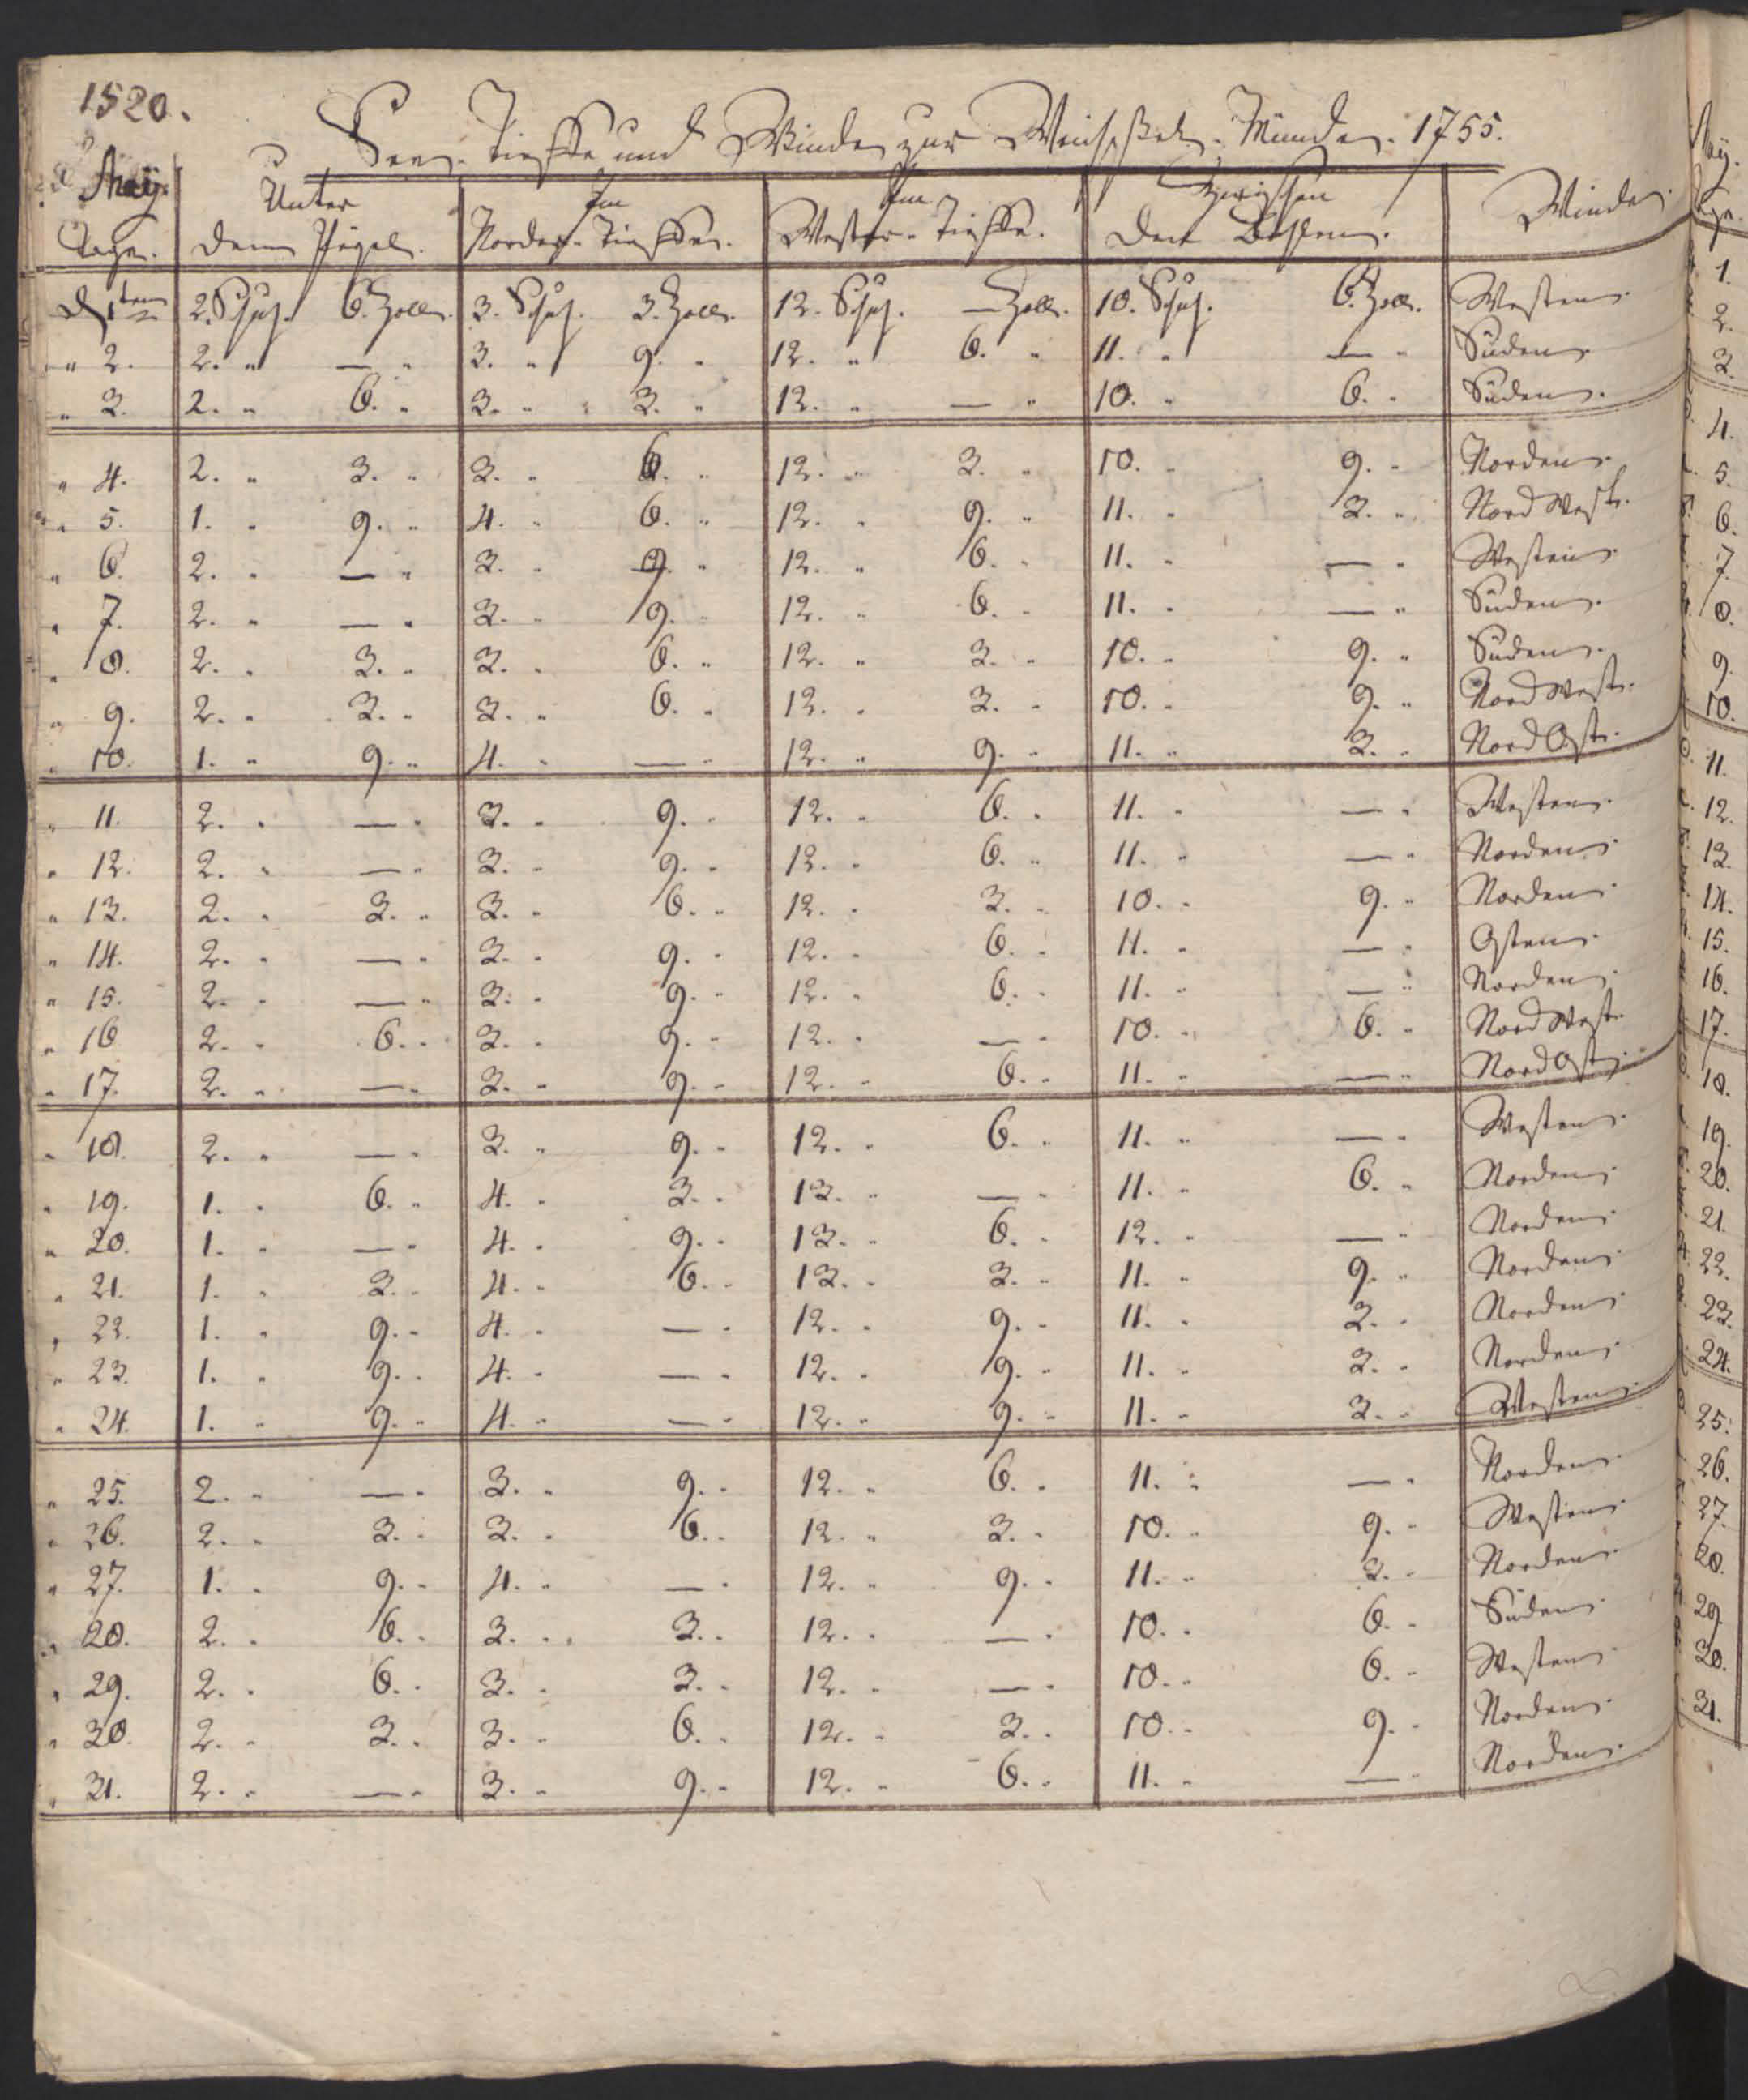 1520.
See-Tieffe und Winde zur Weichsel-Münde. 1755.
May. Unter Im Im Zwischen Winde.
Tage. dem Pegel. Norder-Tieffe. Wester-Tieffe. den Bohlen.
d 1ten 2. Schuh. 6. Zoll. 3. Schuh. 3. Zoll. 12. Schuh. — Zoll. 10. Schuh. 6. Zoll. Westen.
" 2. 2. " — " 3. " 9. " 12. " 6. " 11. " — " Süden.
" 3. 2. " 6. " 3. " 3. " 12. " — " 10. " 6. " Süden.
" 4. 2. " 3. " 3. " 6. " 12. " 3. " 10. " 9. " Norden.
" 5. 1. " 9. " 4. " 6. " 12. " 9. " 11. " 3. " Nord West.
" 6. 2. " — " 3. " 9. " 12. " 6. " 11. " — " Westen.
" 7. 2. " — " 3. " 9. " 12. " 6. " 11. " — " Süden.
" 8. 2. " 3. " 3. " 6. " 12. " 3. " 10. " 9. " Süden.
" 9. 2. " 3. " 3. " 6. " 12. " 3. " 10. " 9. " Nord West.
" 10. 1. " 9. " 4. " — " 12. " 9. " 11. " 3. " Nord Ost.
" 11. 2. " — " 3. " 9. " 12. " 6. " 11. " — " Westen.
" 12. 2. " — " 3. " 9. " 12. " 6. " 11. " — " Norden.
" 13. 2. " 3. " 3. " 6. " 12. " 3. " 10. " 9. " Norden.
" 14. 2. " — " 3. " 9. " 12. " 6. " 11. " — " Osten.
" 15. 2. " — " 3. " 9. " 12. " 6. " 11. " — " Norden.
" 16 2. " 6. " 3. " 9. " 12. " — " 10. " 6. " Nord West.
" 17. 2. " — " 3. " 9. " 12. " 6. " 11. " — " Nord Ost.
" 18. 2. " — " 3. " 9. " 12. " 6. " 11. " — " Westen.
" 19. 1. " 6. " 4. " 3. " 13. " — " 11. " 6. " Norden.
" 20. 1. " — " 4. " 9. " 13. " 6. " 12. " — " Norden.
" 21. 1. " 3. " 4. " 6. " 13. " 3. " 11. " 9. " Norden.
" 22. 1. " 9. " 4. " — " 12. " 9. " 11. " 3. " Norden.
" 23. 1. " 9. " 4. " — " 12. " 9. " 11. " 3. " Norden.
" 24. 1. " 9. " 4. " — " 12. " 9. " 11. " 3. " Westen.
" 25. 2. " — " 3. " 9. " 12. " 6. " 11. " — " Norden.
" 26. 2. " 3. " 3. " 6. " 12. " 3. " 10. " 9. " Westen.
" 27. 1. " 9. " 4. " — " 12. " 9. " 11. " 3. " Norden.
" 28. 2. " 6. " 3. " 3. " 12. " — " 10. " 6. " Süden.
" 29. 2. " 6. " 3. " 3. " 12. " — " 10. " 6. " Westen.
" 30. 2. " 3. " 3. " 6. " 12. " 3. " 10. " 9. " Norden.
" 31. 2. " — " 3. " 9. " 12. " 6. " 11. " — " Norden.
1.
2.
3.
4.
5.
6.
7.
8.
9.
10.
11.
12.
13.
14.
15.
16.
17.
18.
19.
20.
21.
22.
23.
24.
25.
26.
27.
28.
29.
30.
31.